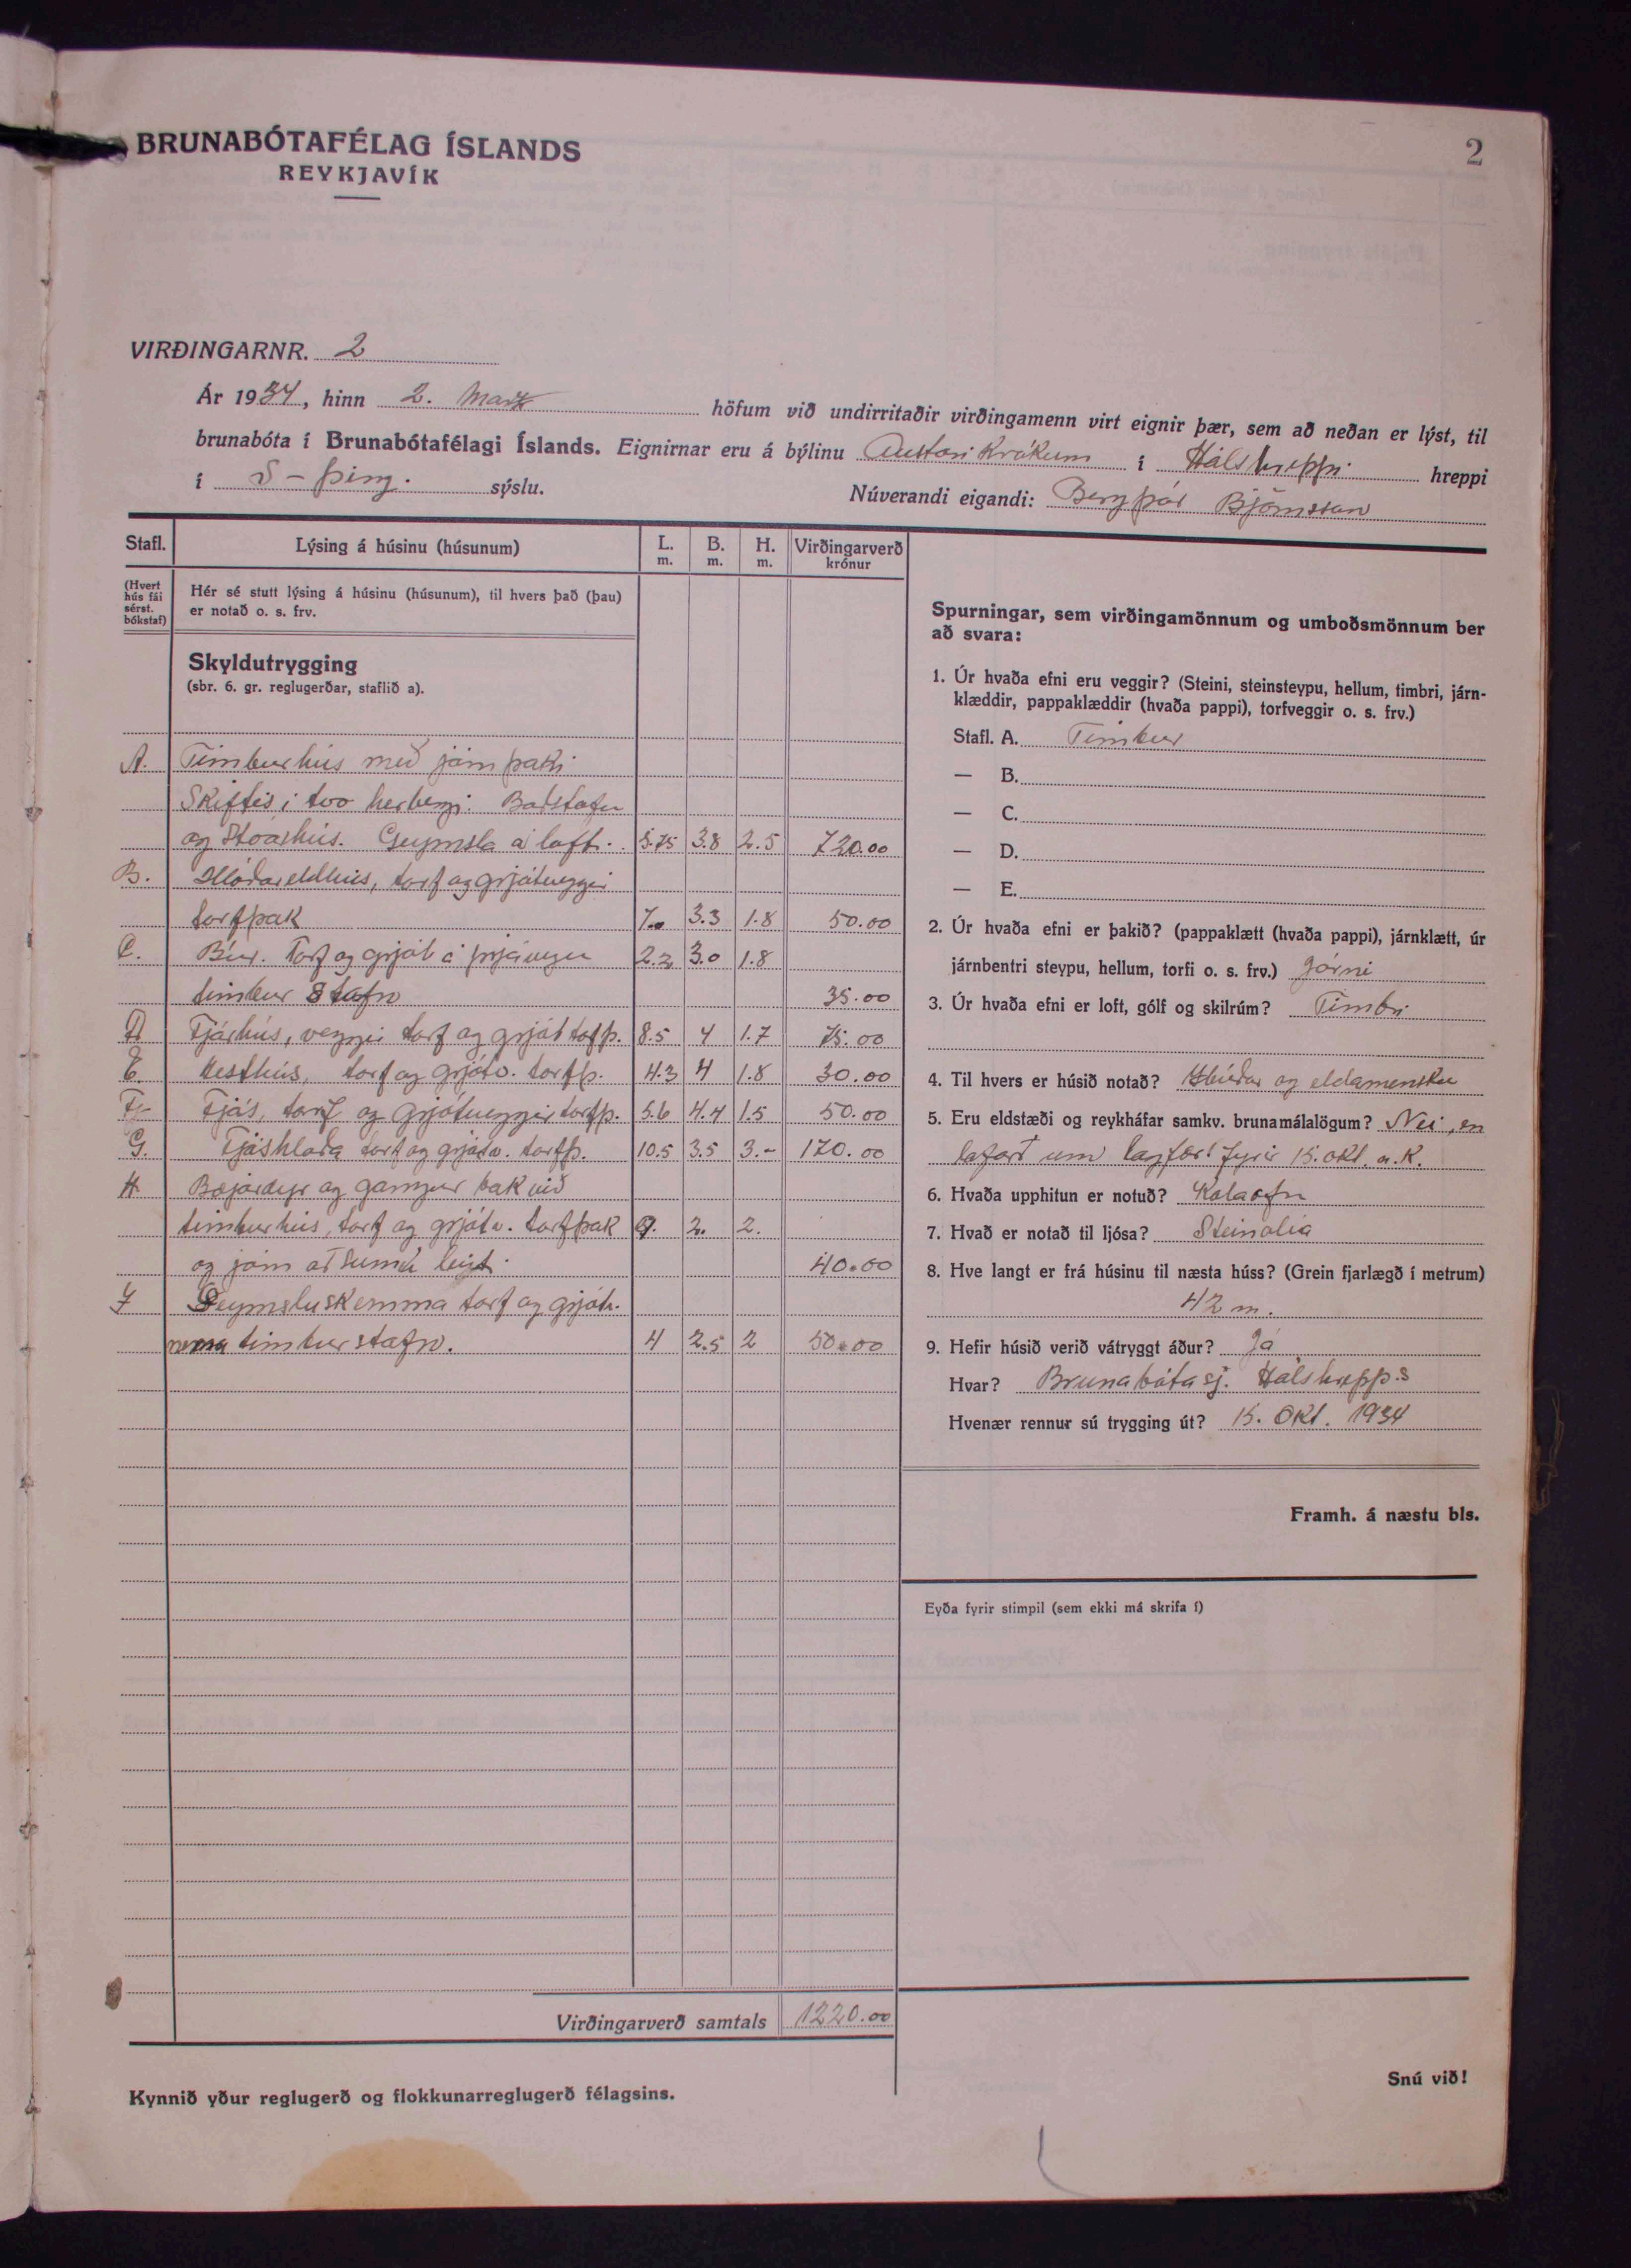 BRUNABÓTAFÉLAG ÍSLANDS
REYKJAVÍK
2
VIRÐINGARNR. 2
Ár 1934, hinn 2. Marz höfum við undirritaðir virðingamenn virt eignir þær, sem að neðan er lýst, til
brunabóta í Brunabótafélagi Íslands. Eignirnar eru á býlinu Austari Krókum í Hálshreppi hreppi
í S-Þing. sýslu. Núverandi eigandi: Bergþór Björnsson
Stafl. Lýsing á húsinu (húsunum) L. m. B. m. H. m. Virðingarverð krónur
(Hvert hús fái sérst. bókstaf)
Hér sé stutt lýsing á húsinu (húsunum), til hvers það (þau)
er notað o. s. frv.
Skyldutrygging
(sbr. 6. gr. reglugerðar, staflið a).
A. Timburhús með járnþaki
Skiftis í tvo herbergi. Baðstofu
og Stóarhús. Geymsla á lofti. 5.75 3.8 2.5 720.00
B. Hlóðareldhús, torf og grjótveggir
torfþak 7.0 3.3 1.8 50.00
C. Búr. Torf og grjót á þrjá vegu 2.2 3.0 1.8
timbur Stafn 35.00
D Fjárhús, veggir torf og grjót tofþ. 8.5 4 1.7 75.00
E. Hesthús, torf og grjótv. torfþ. 4.3 4 1.8 30.00
F Fjós, torf og grjótveggir torfþ. 5.6 4.4 1.5 50.00
G. Fjóshlaða torf og grjótv. torfþ. 10.5 3.5 3.- 170.00
H Bæjardyr og gangur bak við
timburhús, torf og grjótv. torfþak 9. 2. 2.
og járn að sumu leyti. 40.00
Geymsluskemma torf og grjót.
nema timburstafn. 4 2.5 2 50.00
Virðingarverð samtals 1220.00
Kynnið yður reglugerð og flokkunarreglugerð félagsins.
Spurningar, sem virðingamönnum og umboðsmönnum ber
að svara:
1. Úr hvaða efni eru veggir? (Steini, steinsteypu, hellum, timbri, járn-
klæddir, pappaklæddir (hvaða pappi), torfveggir o. s. frv.)
Stafl. A. Timbur
— B.
— C.
— D.
— E.
2. Úr hvaða efni er þakið? (pappaklætt (hvaða pappi), járnklætt, úr
járnbentri steypu, hellum, torfi o. s. frv.) Járni
3. Úr hvaða efni er loft, gólf og skilrúm? Timbri
4. Til hvers er húsið notað? Íbúðar og eldamensku
5. Eru eldstæði og reykháfar samkv. brunamálalögum? Nei, en
lofað um lagfært fyrir 15. okt. n.k.
6. Hvaða upphitun er notuð? Kolaofn
7. Hvað er notað til ljósa? Steinolía
8. Hve langt er frá húsinu til næsta húss? (Grein fjarlægð í metrum)
42 m.
9. Hefir húsið verið vátryggt áður? Já
Hvar? Brunabótasj. Hálshrepps
Hvenær rennur sú trygging út? 15. Okt. 1934
Framh. á næstu bls.
Eyða fyrir stimpil (sem ekki má skrifa í)
Snú við!